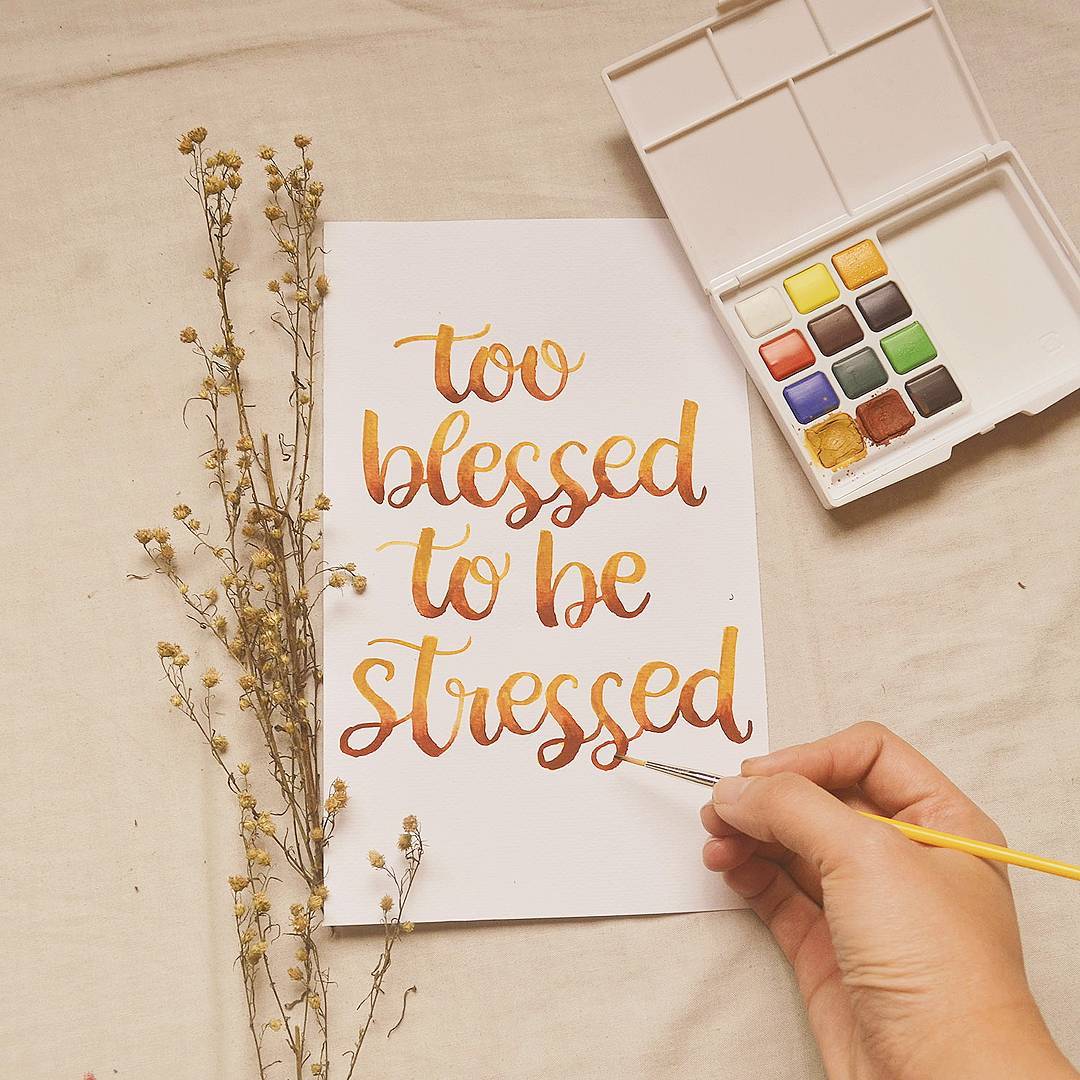 too
blessed
to be
stressed